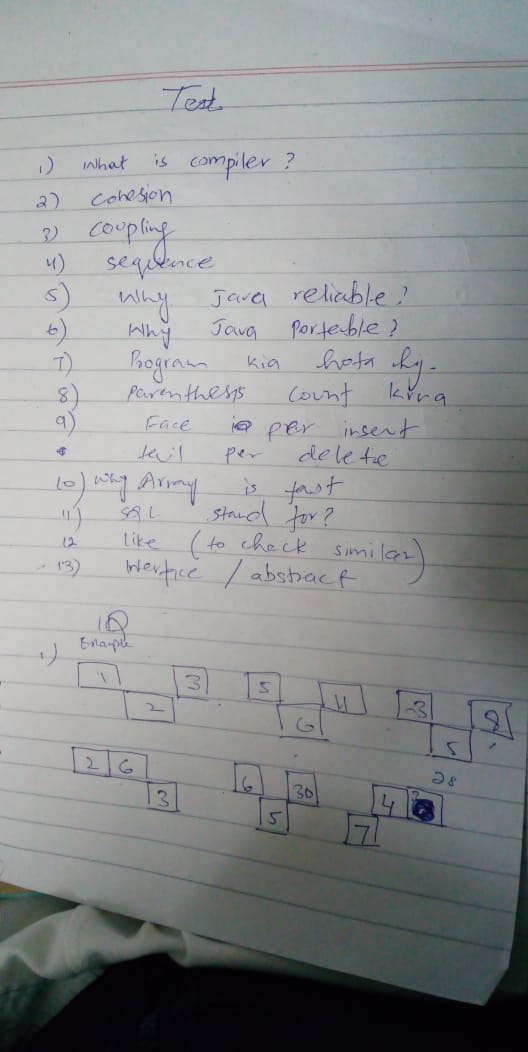 Test
1) What is compiler?
2) cohesion
3) coupling
4) sequence
5) Why Java reliable?
6) Why Java Porteable?
7) Program kia hota hy.
8) Parenthesis count krna
9) Face per insert
tail per delete
10) Why Array is fast
11) SQL stand for?
12 like (to check similar)
13) Interfice / abstract
IQ
Example
1)
1 3 5 11 -3 8
2 6 5
28
2 6 6 30 4 ?
3 5 7